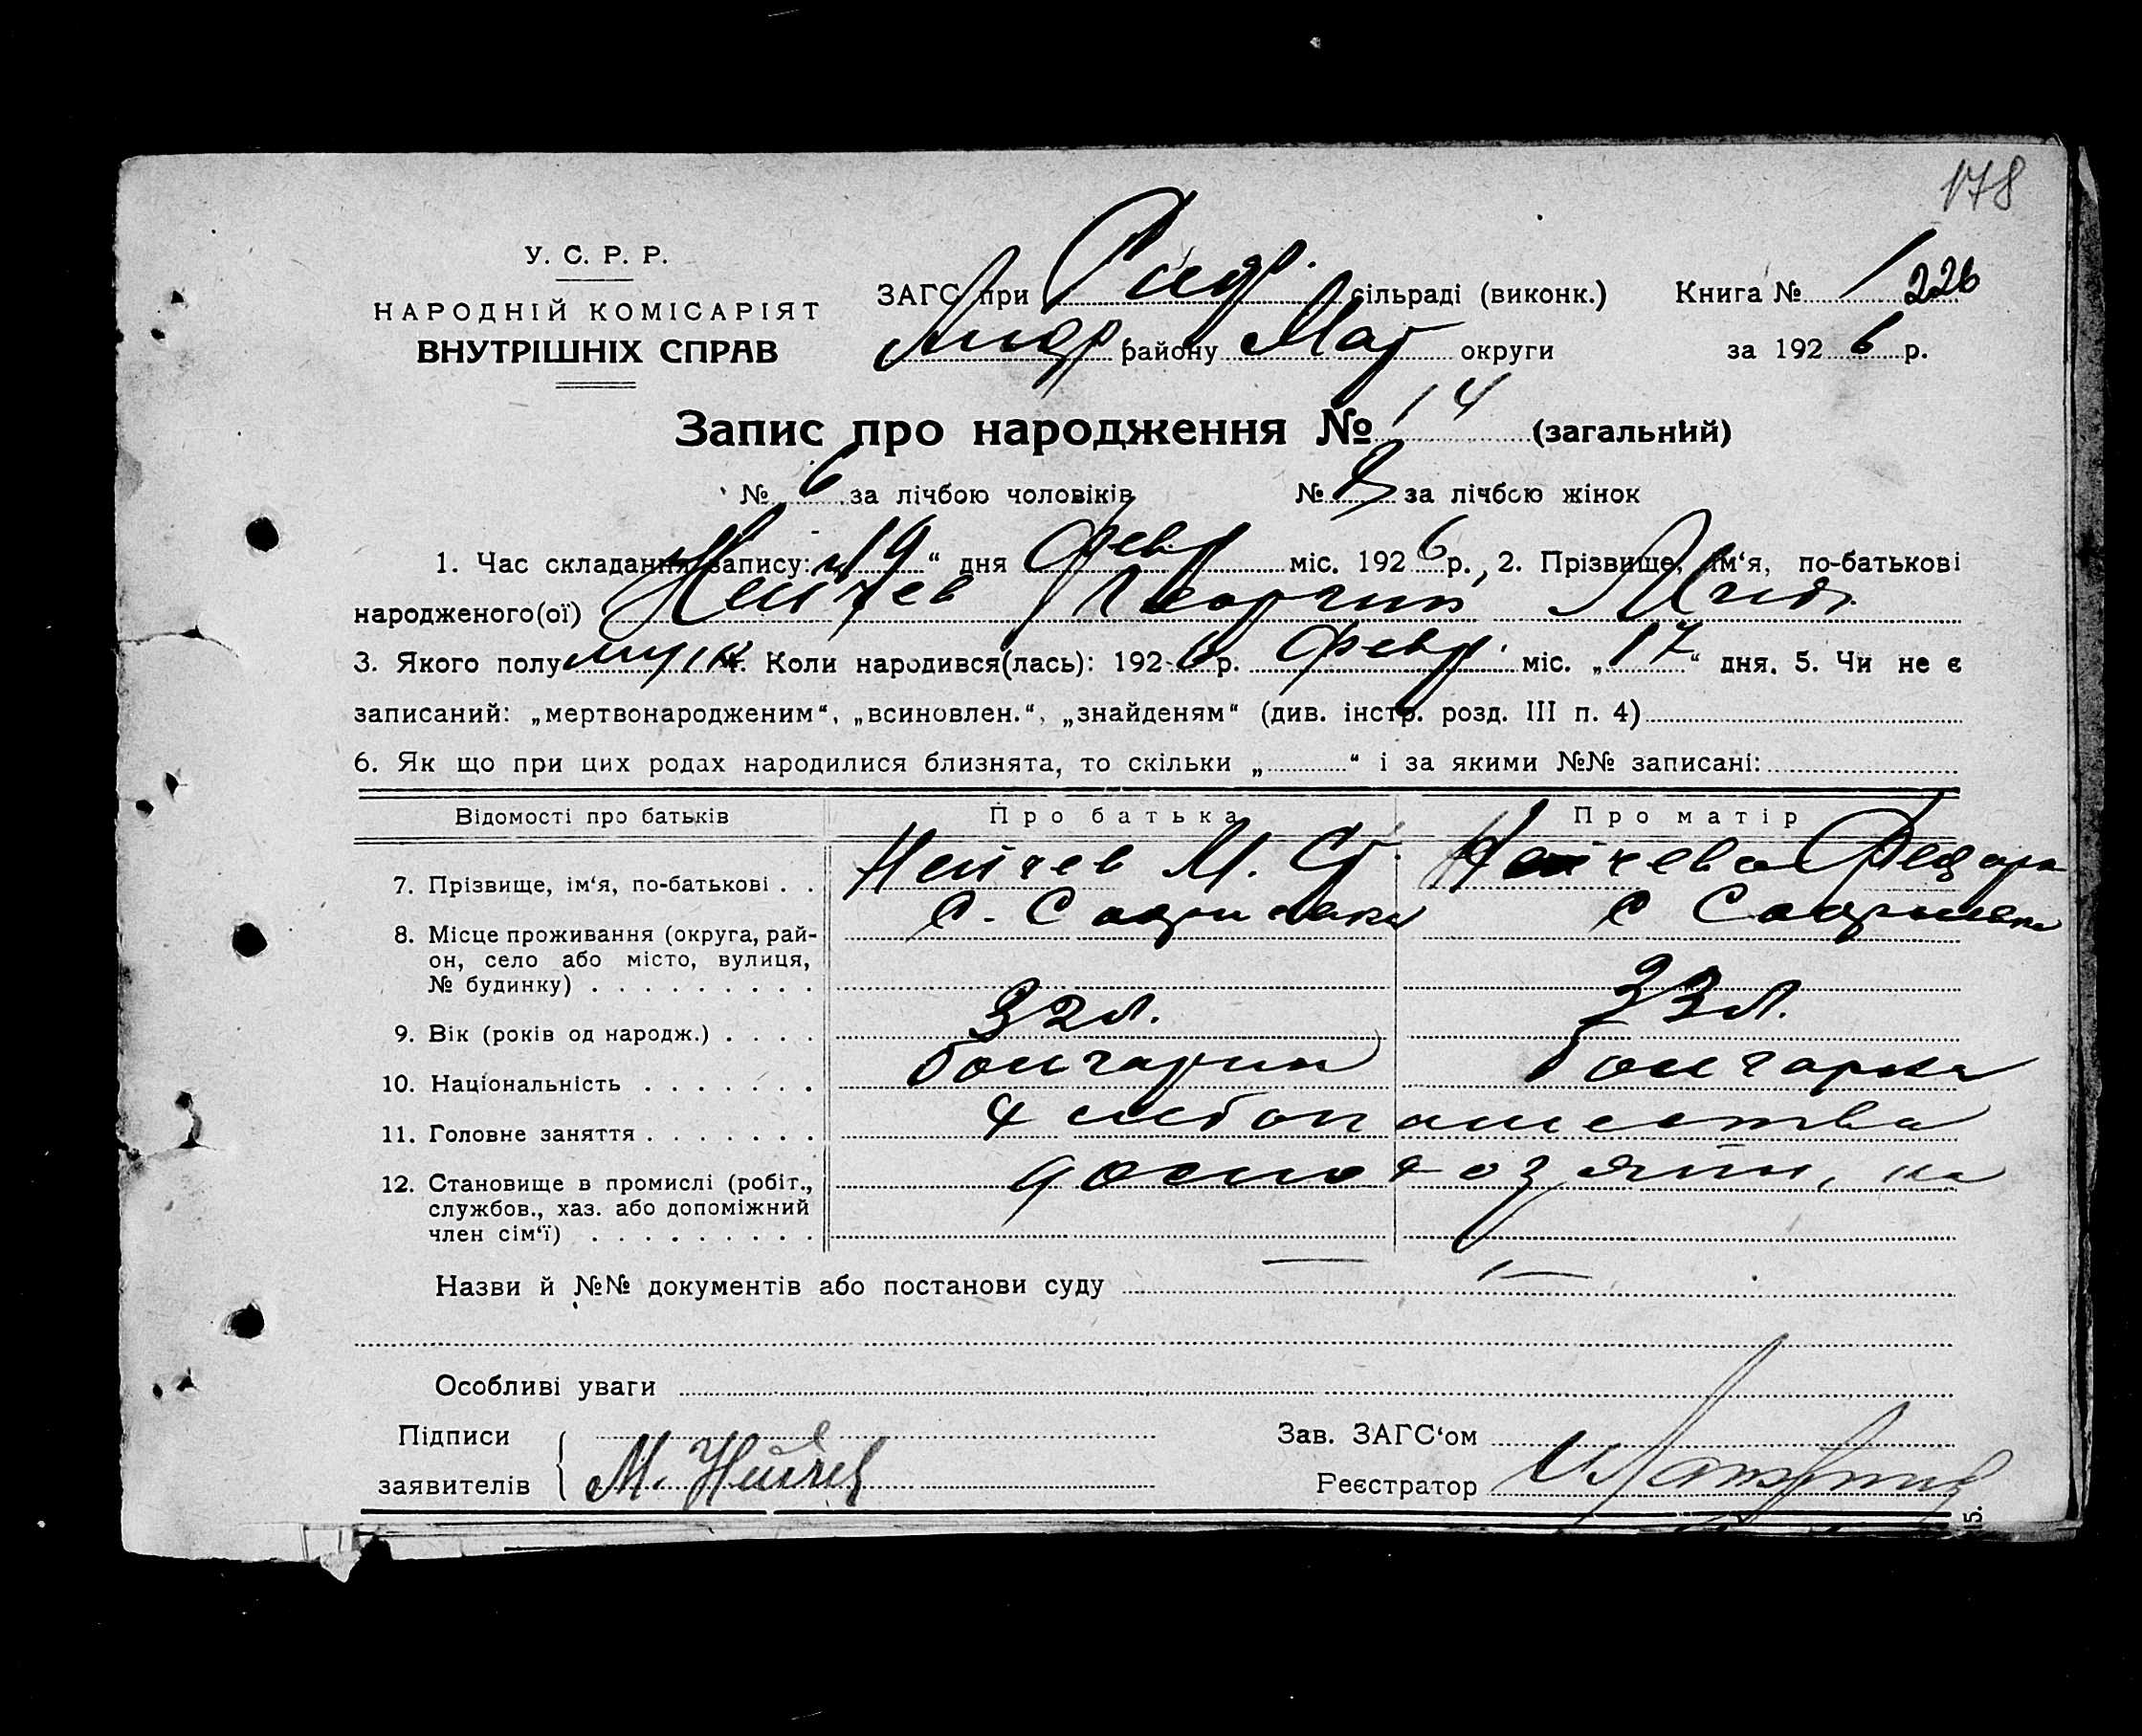 178
У. С. Р. Р.
НАРОДНІЙ КОМІСАРІЯТ
ВНУТРІШНІХ СПРАВ
ЗАГС при сільраді (виконк.)
Андр району Мар округи
Книга № 1 226
за 1926 р.
Запис про народження № 14 (загальний)
№ 6 за лічбою чоловіків № 8 за лічбою жінок
1. Час складання запису: „19“ дня Февр міс. 1926 р., 2. Прізвище, ім‘я, по-батькові
народженого(ої) Нейчев Георгий
3. Якого полу муж 4. Коли народився(лась): 1926 р. Февр. міс. „17“ дня. 5. Чи не є
записаний: „мертвонародженим“, „всиновлен.“, „знайденям“ (див. інстр. розд. III п. 4)
6. Як що при цих родах народилися близнята, то скільки „ “ і за якими №№ записані:
Відомості про батьків Про батька Про матір
7. Прізвище, ім‘я, по-батькові . . Нейчев М. Нейчева Федора
8. Місце проживання (округа, рай-
он, село або місто, вулиця,
№ будинку) . . . . . . . . .
9. Вік (років од народж.) . . . . 32 л. 33 л.
10. Національність . . . . . . . болгарин болгарка
11. Головне заняття . . . . . . . хлебопашества
12. Становище в промислі (робіт.,
службов., хаз. або допоміжний
член сім‘ї) . . . . . . . . .
Назви й №№ документів або постанови суду
Особливі уваги
Підписи
заявителів М. Нейчев
Зав. ЗАГС‘ом
Реєстратор